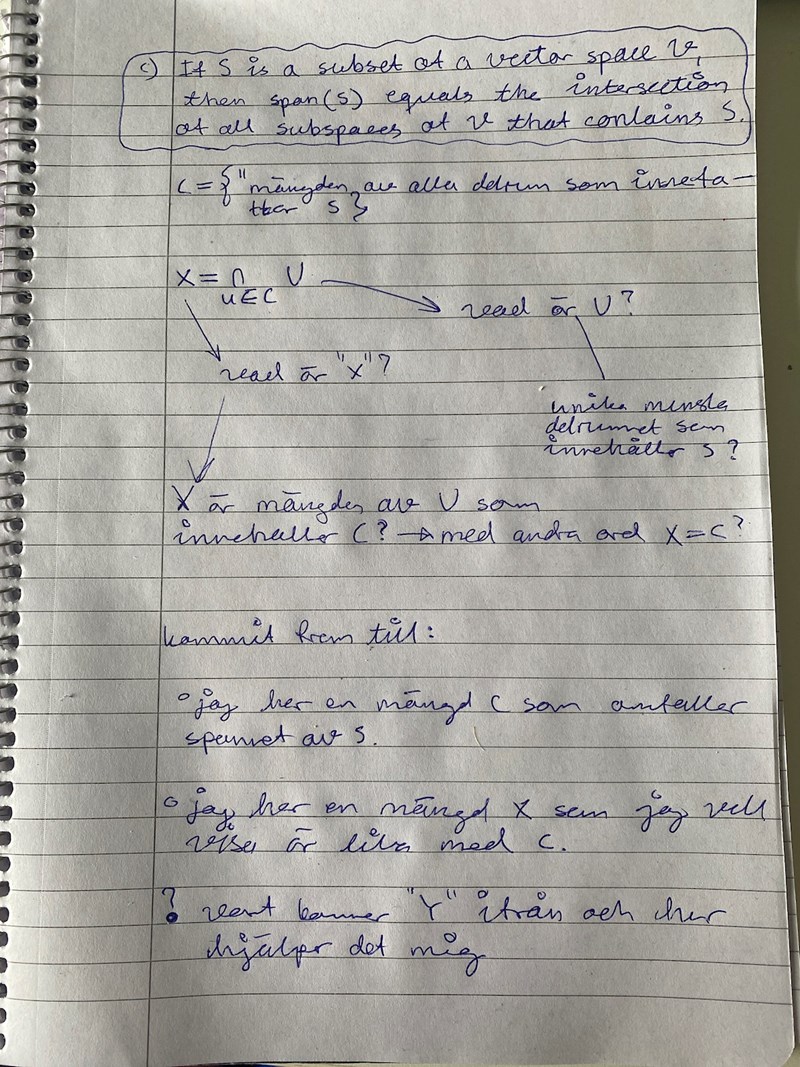 c) If S is a subset of a vector space V,
then span(S) equals the intersection
of all subspaces of V that contains S.
C = { "mängden av alla delrum som innefa-
ttar S }
X = ∩ U
U∈C
vad är U?
vad är "X"?
unika minsta
delrummet som
innehåller S?
X är mängden av U som
innehåller C? → med andra ord X = C?
kommit fram till:
◦ jag har en mängd C som omfattar
spannet av S.
◦ jag har en mängd X som jag vill
visa är lika med C.
? vart kommer "Y" ifrån och hur
hjälper det mig